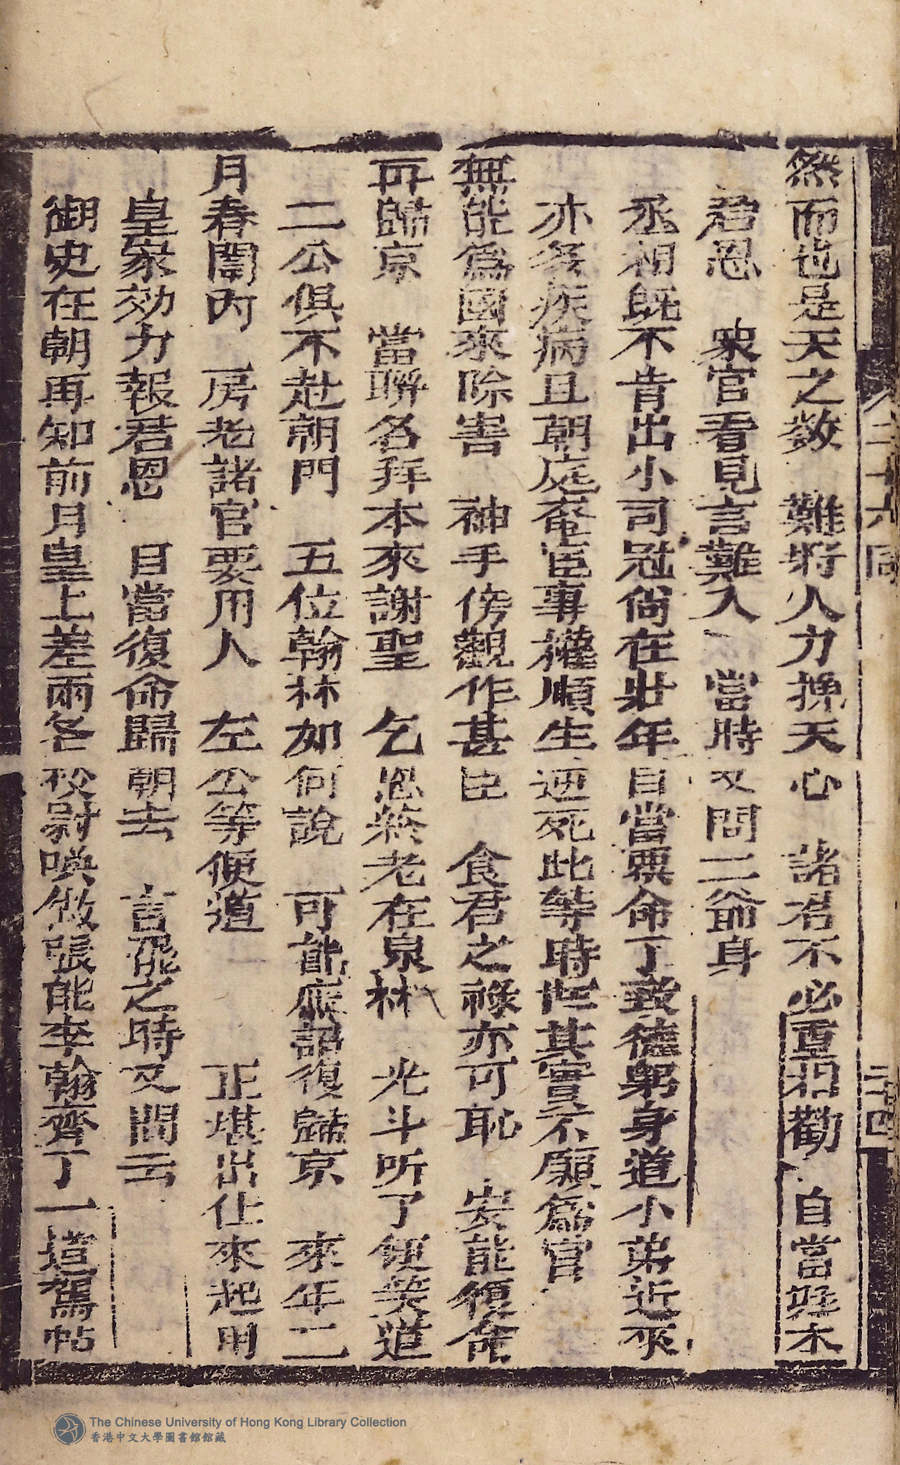 然而也是天之數　難將人力挽天心　諸君不必重相勸　自當　木
君恩　衆官看見言難入　當時又問二爺身
丞相既不肯出小司冦尙在壯年自當票命丁致德躬身道小弟近來
亦多疾病且朝庭奄宦事權順生逆死此等時世其實不願爲官
無能爲國來除害　神手傍觀作甚臣　食君之祿亦可恥　安能復舍
再歸京　當聯名拜本來謝聖　乞恩養老在泉林　光斗听了便笑道
二公俱不赴朝門　五位翰林如何說　可能應詔復歸京　來年二
月春闈內　房老諸官要用人　左公等便道　正堪出仕來起用
皇家効力報君恩　目當復命歸朝去　言飛之時又問云
御史在朝再知前月皇上差兩名校尉喚做張能李翰齊了一道駕帖
二十六囘
二十四
The Chinese University of Hong Kong Library Collection
香港中文大學圖書館館藏